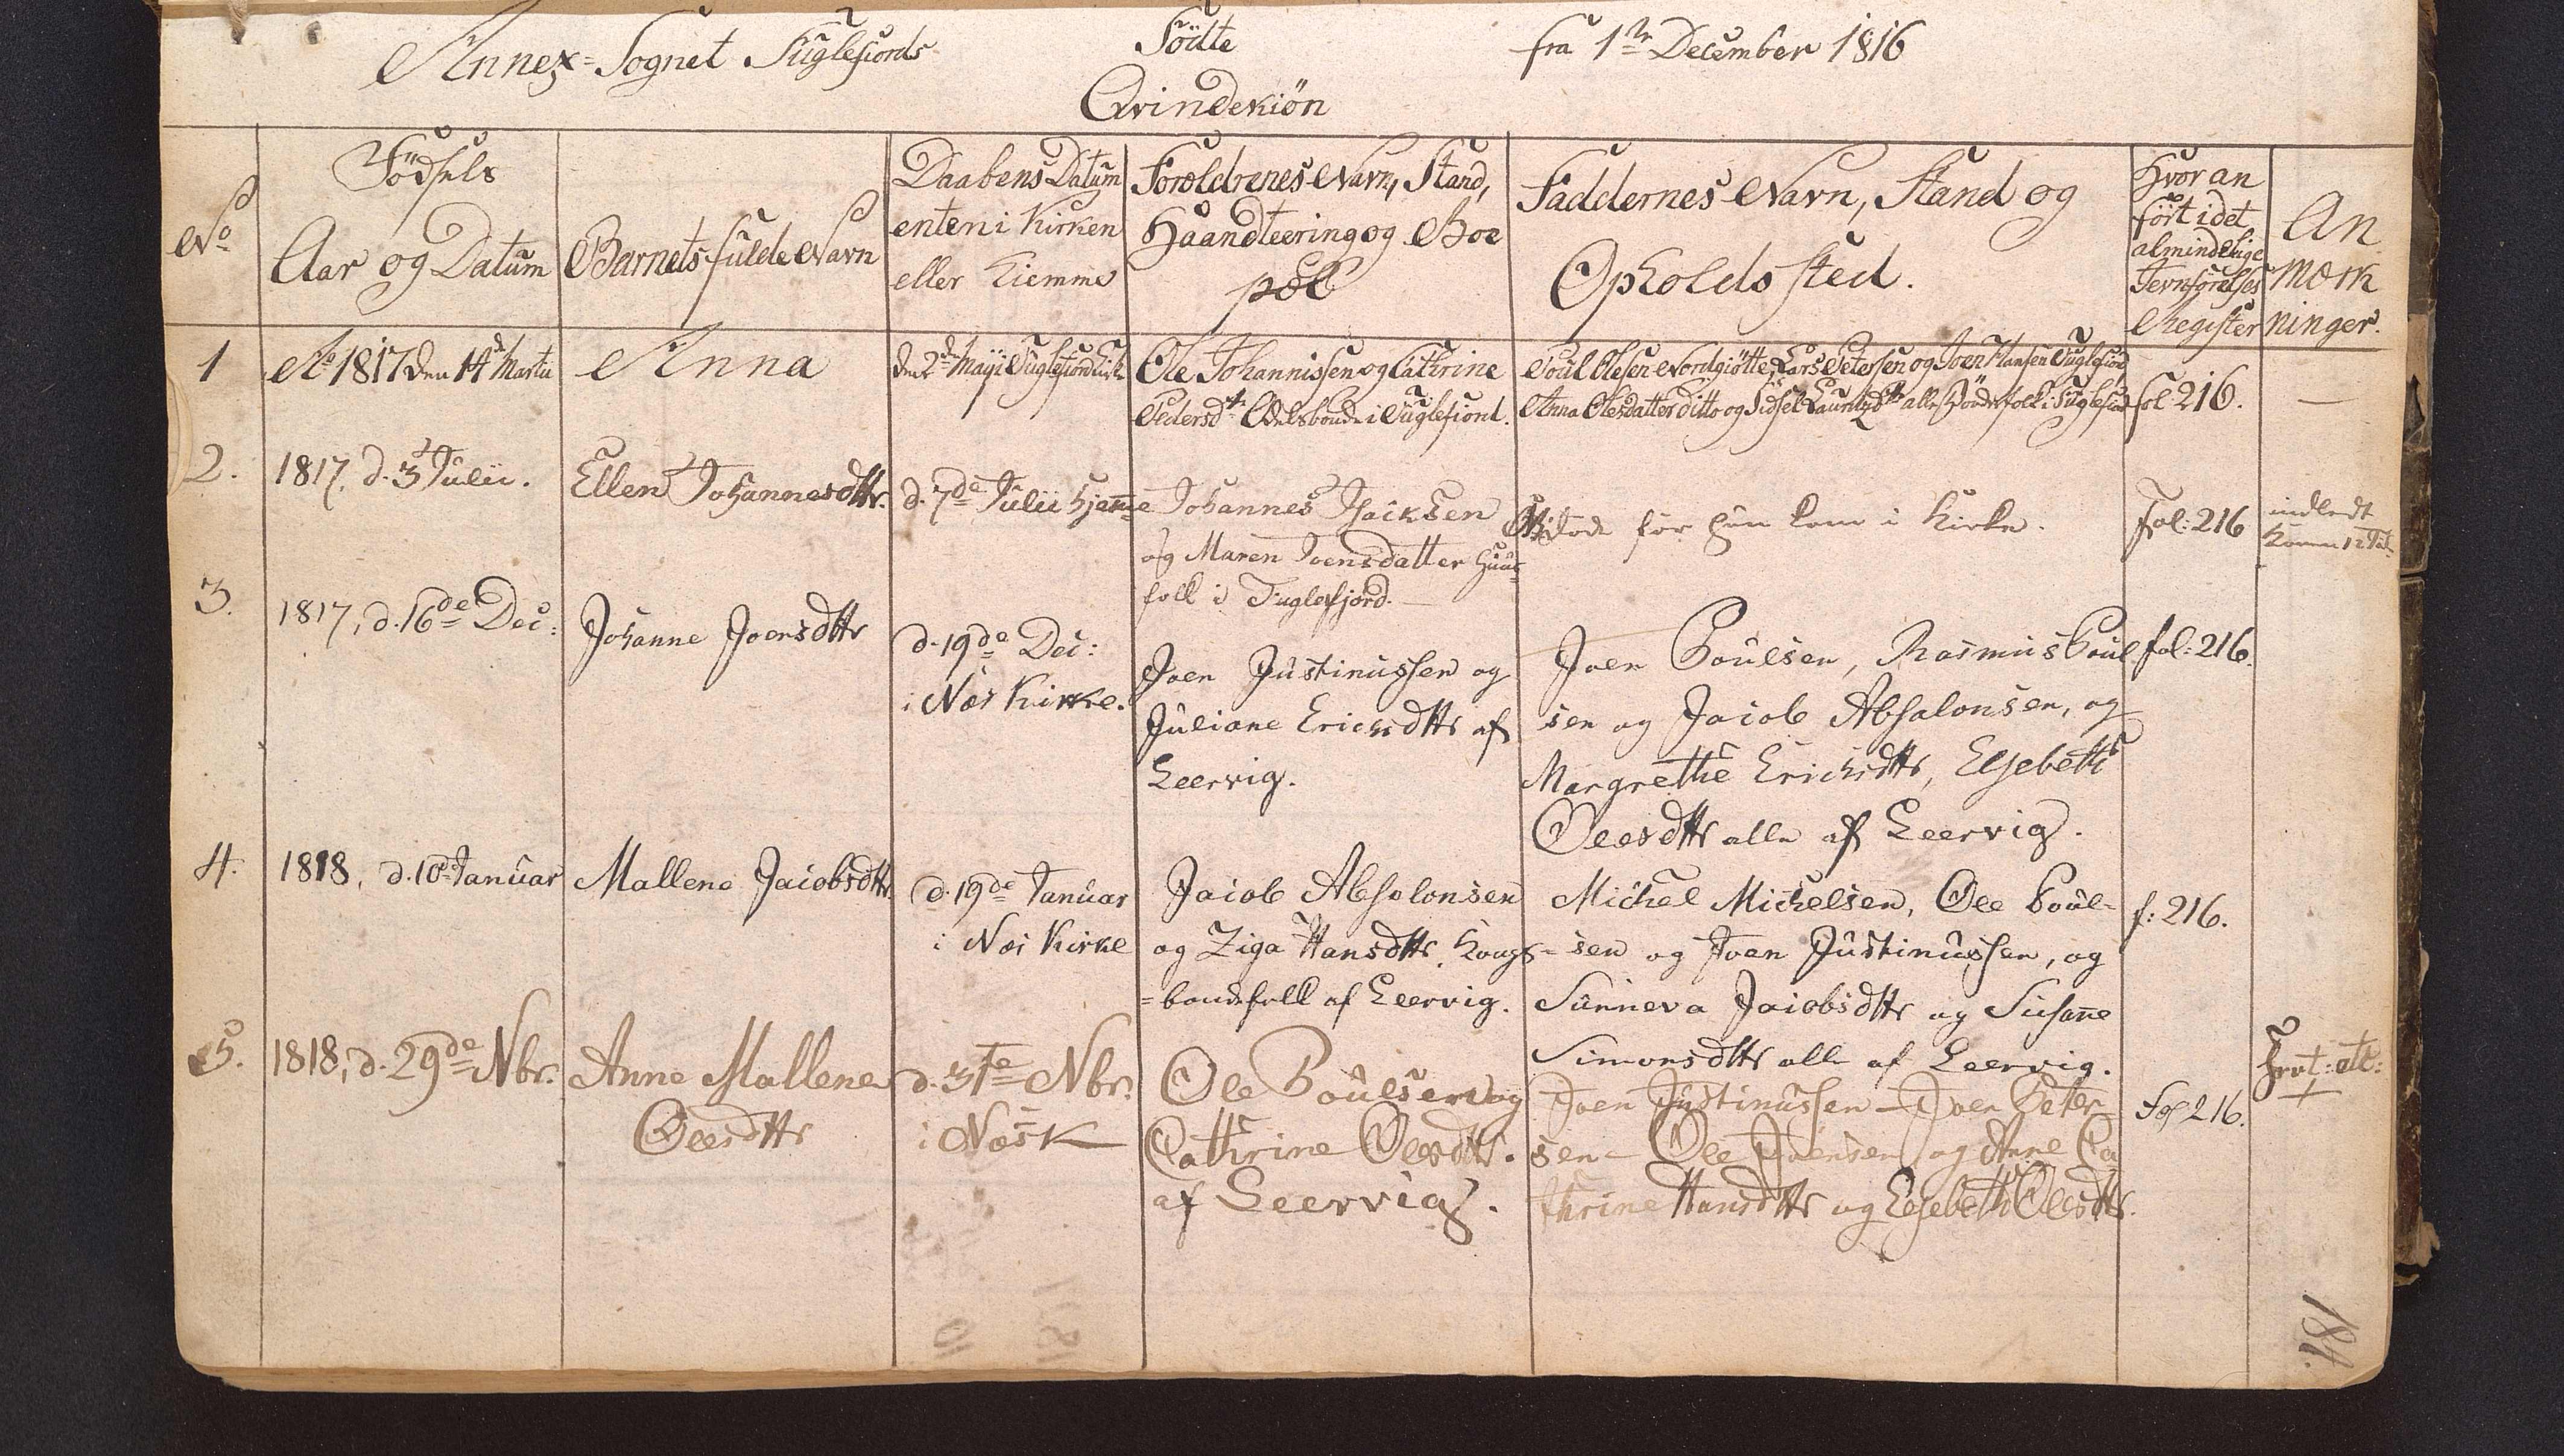 Annex=Sognet Fuglefiords
Födte
fra 1te December 1816
Qvindekiön
No
Födsels
Aar og Datum
Barnets fulde Navn
Daabens Datum
enten i Kirken
eller Hiemme
Forældrenes Navn, Stand,
Haandteering og Boe
pæl
Faddernes Navn, Stand og
Opholds sted.
Hvor an
fört i det
almindelige
Jevnförelses
Register
An
mærk
ninger.
1
Ao 1817 den 14de Martii
Anna
den 2den Maji Fuglefiord Kirke
Ole Johannissen og Cathrine
Pedersdtr Odelsbonde i Fuglefiord.
Poul Olesen Nordgiötte, Lars Petersen og Joen Hansen Fuglefiord
Anna Olesdatter ditto og Sidsel alle i Fuglefiord
fol 216.
—
2.
1817, d. 3 Julii.
Ellen Johannesdttr.
d. 7de Julii hjemme
Johannes Isaiksen
og Maren Joensdatter Huus-
folk i Fuglefjord.—
döde för hun kom i Kirke.
Fol: 216
indledt
3.
1817, d. 16de Dec:
Johanne Joensdttr
d. 19de Dec:
i Næs Kirke.
Joen Justinussen og
Juliane Erichsdttr af
Leervig.
Joen Poulsen, Rasmus Poul
sen og Jacob Absalonsen, og
Margrethe Erichsdttr, Elsebeth
Olesdttr alle af Leervig.
fol: 216.
4.
1818, d. 10de Januar
Mallene Jacobsdttr.
d. 19de Januar
i Næs Kirke
Jacob Absolonsen
og Ziga Hansdttr, Kongs-
=bondefolk af Leervig.
Michel Michelsen, Ole Poul-
sen og Joen Justinussen, og
Sunneva Jacobsdttr og Susanne
Simonsdttr alle af Leervig.
f: 216.
5.
1818, d. 29de Nbr.
Anne Mallene
Olesdttr
d. 31te Nbr.
i Næs K
Ole Poulsen og
Cathrine Olesdttr.
af Leervig.
Joen Justinussen — Joen Peter-
sen — Ole Joensen og Anne Ca
thrine Hansdttr og Elsebeth Olesdttr.
Fol 216.
184.